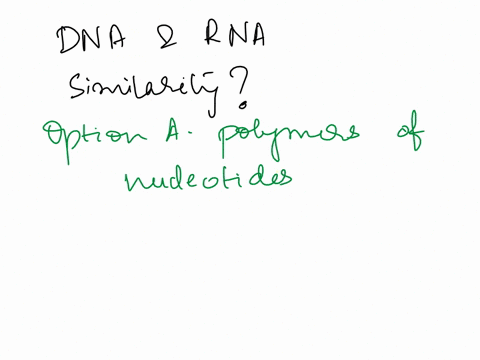 DNA & RNA
Similarity?
Option A. polymers of
nucleotides